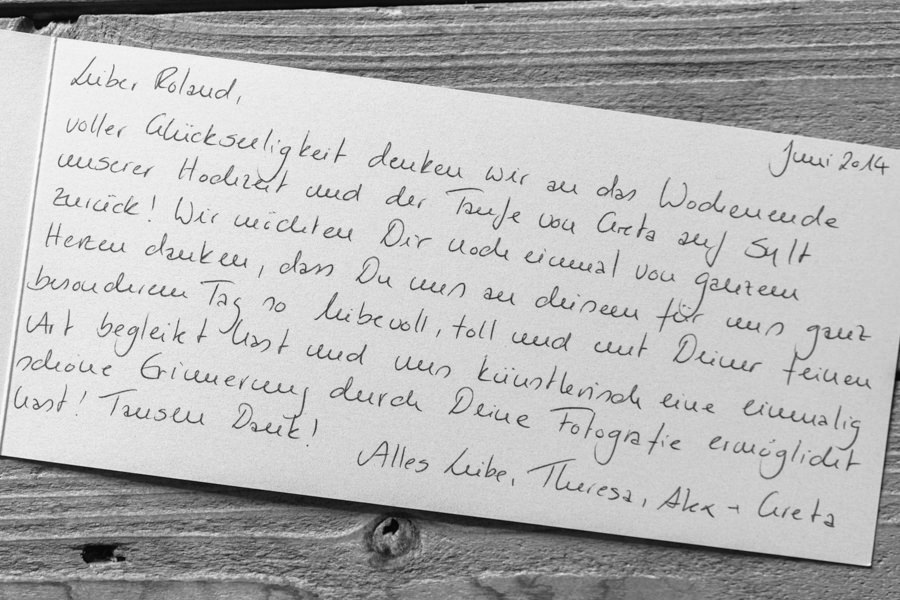 Lieber Roland,
Juni 2014
voller Glückseeligkeit denken wir an das Wochenende
unserer Hochzeit und der Taufe von Greta auf Sylt
zurück! Wir möchten Dir noch einmal von ganzem
Herzen danken, dass Du uns an diesem für uns ganz
besonderem Tag so liebevoll, toll und mit Deiner feinen
Art begleitet hast und uns künstlerisch eine einmalig
schöne Erinnerung durch Deine Fotografie ermöglicht
hast! Tausen Dank!
Alles Liebe, Theresa, Alex + Greta